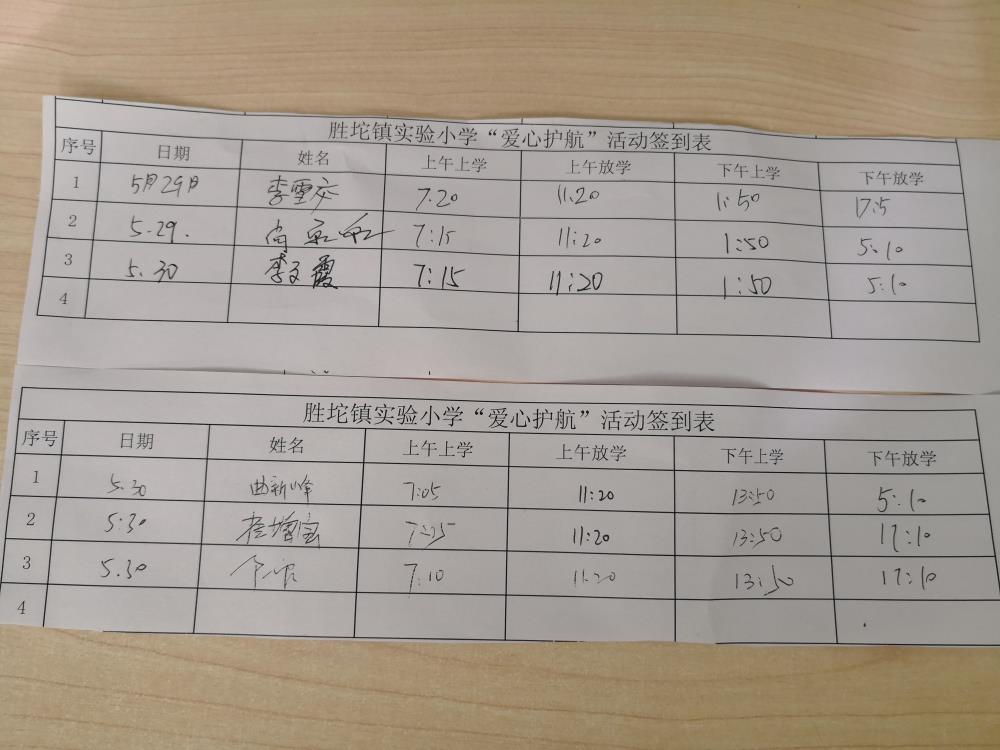 胜坨镇实验小学“爱心护航”活动签到表
序号 日期 姓名 上午上学 上午放学 下午上学 下午放学
1 5月29日 李雪 7:20 11:20 1:50 17:5
2 5.29. 尚 7:15 11:20 1:50 5:10
3 5.30 李文霞 7:15 11:20 1:50 5:10
4
胜坨镇实验小学“爱心护航”活动签到表
序号 日期 姓名 上午上学 上午放学 下午上学 下午放学
1 5.30 曲新峰 7:05 11:20 13:50 5:10
2 5:30 增宝 11:20 13:50 17:10
3 5.30 7:10 11:20 13:50 17:10
4